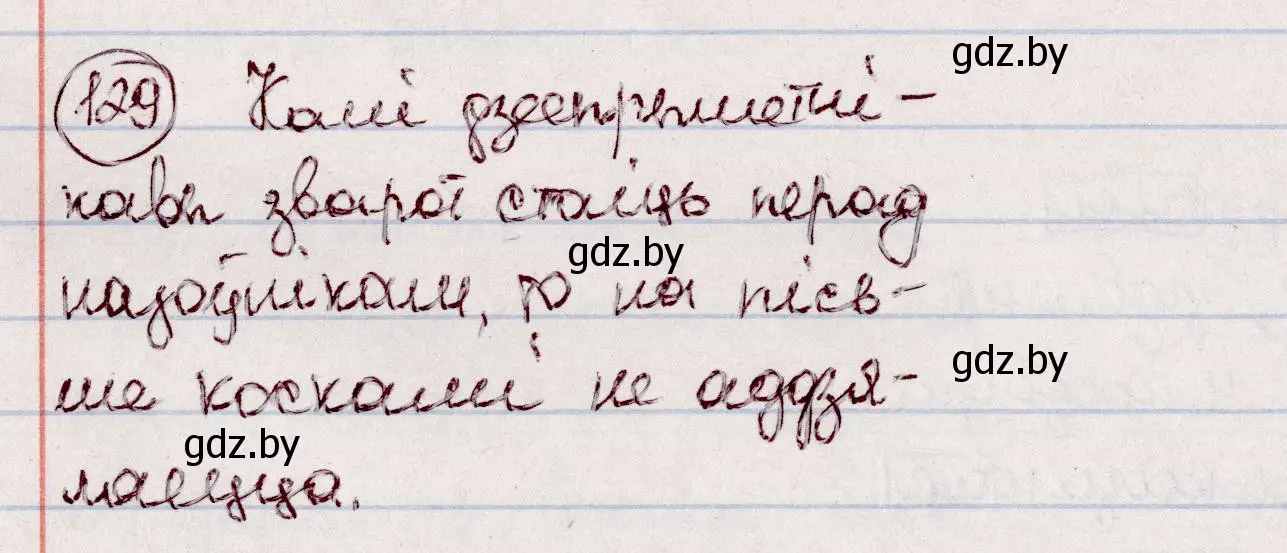 129 Калі дзеепрыметні-
кавы зварот стаіць перад
назоўнікам, то на пісь-
ме коскамі не аддзя-
ляецца.
gdz.by
gdz.by
gdz.by
gdz.by